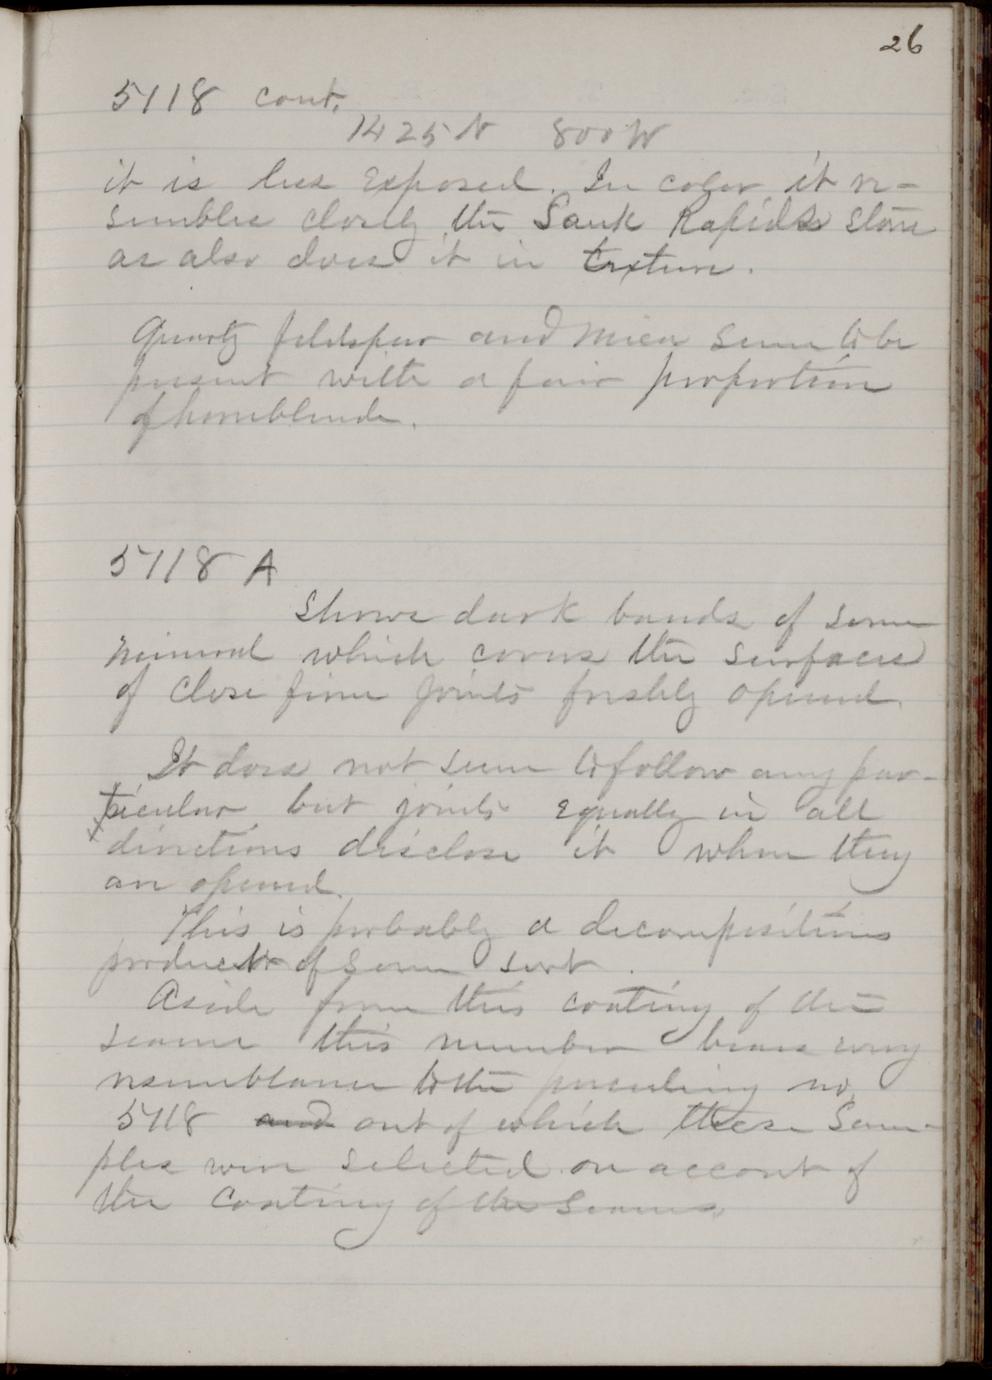 26
5118 cont.
1425 N 800 W
it is less exposed. In color it re-
sembles closely the Sauk Rapids stone
as also does it in texture.
Quartz feldspar and mica seem to be
present with a fair proportion
of hornblende.
5118 A
Shows dark bands of some
mineral which covers the surfaces
of close firm joints freshly opened.
It does not seem to follow any par-
ticular but joints equally in all
directions disclose it when they
are opened.
This is probably a decomposition
product of some sort.
Aside from this coating of the
seams this number bears every
resemblance to the preceding no.
5118 and out of which these sam-
ples were selected on account of
the coating of the seams.